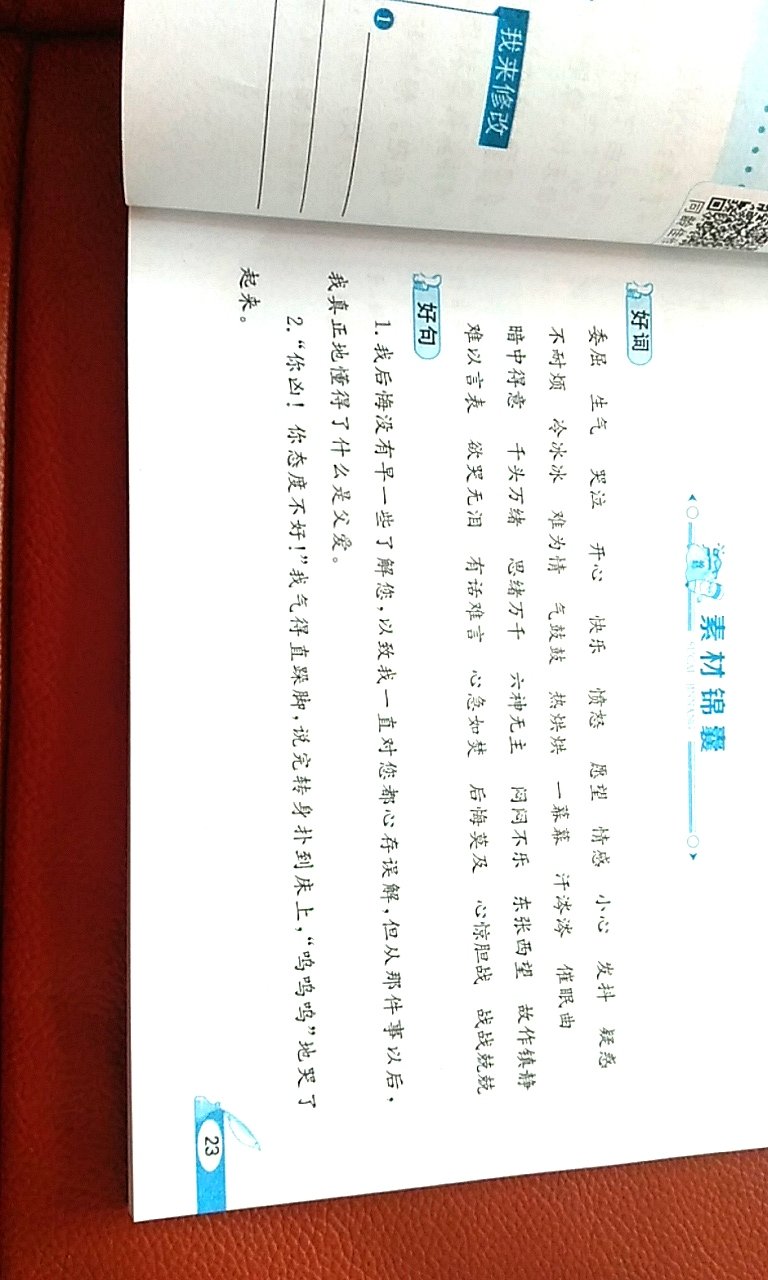 我来修改
1
素材锦囊
SUCAI JINNANG
好词
委屈 生气 哭泣 开心 快乐 愤怒 愿望 情感 小心 发抖 疑惑
不耐烦 冷冰冰 难为情 气鼓鼓 热烘烘 一幕幕 汗涔涔 催眠曲
暗中得意 千头万绪 思绪万千 六神无主 闷闷不乐 东张西望 故作镇静
难以言表 欲哭无泪 有话难言 心急如焚 后悔莫及 心惊胆战 战战兢兢
好句
1.我后悔没有早一些了解您,以致我一直对您都心存误解,但从那件事以后,
我真正地懂得了什么是父爱。
2.“你凶!你态度不好!”我气得直跺脚,说完转身扑到床上,“呜呜呜”地哭了
起来。
23